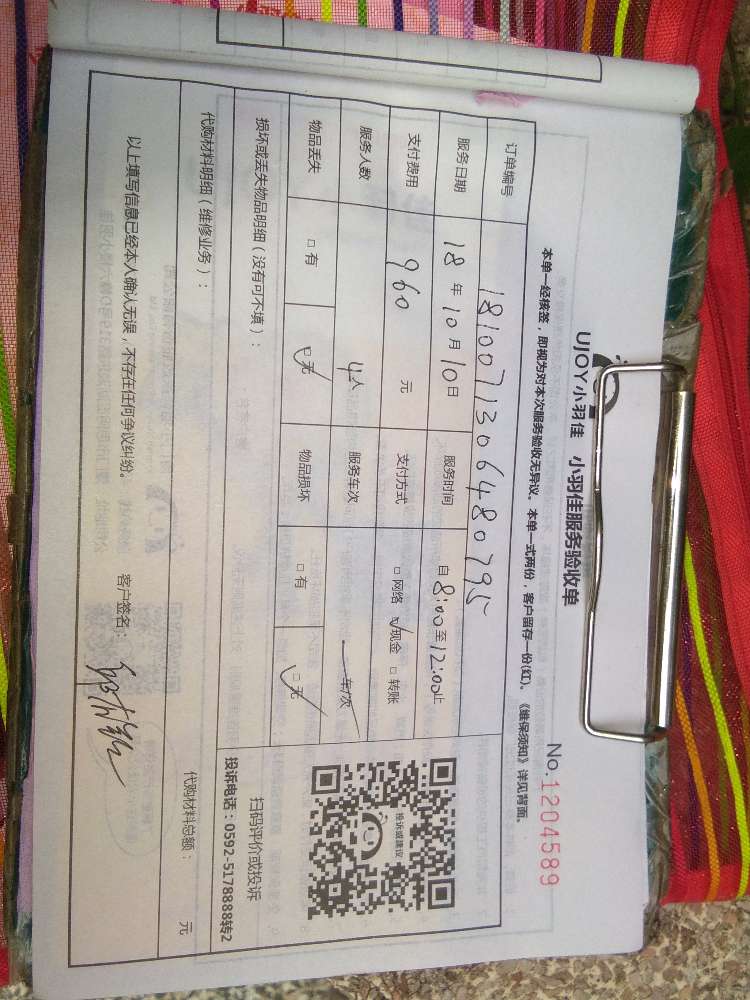 UJOY小羽佳 小羽佳服务验收单
No.1204589
本单一经核签，即视为对本次服务验收无异议。本单一式两份，客户留存一份(红)。《维保须知》详见背面。
订单编号 1810071306480795
服务日期 18年10月10日 服务时间 自8:00至12:00止
支付费用 960元 支付方式 □网络 ☑现金 □转账
服务人数 4人 服务车次 一车/次
物品丢失 □有 ☑无 物品损坏 □有 ☑无
投诉或建议
扫码评价或投诉
投诉电话：0592-5178888转2
损坏或丢失物品明细（没有可不填）：
代购材料明细（维修业务）： 代购材料总额： 元
以上填写信息已经本人确认无误，不存在任何争议纠纷。 客户签名：